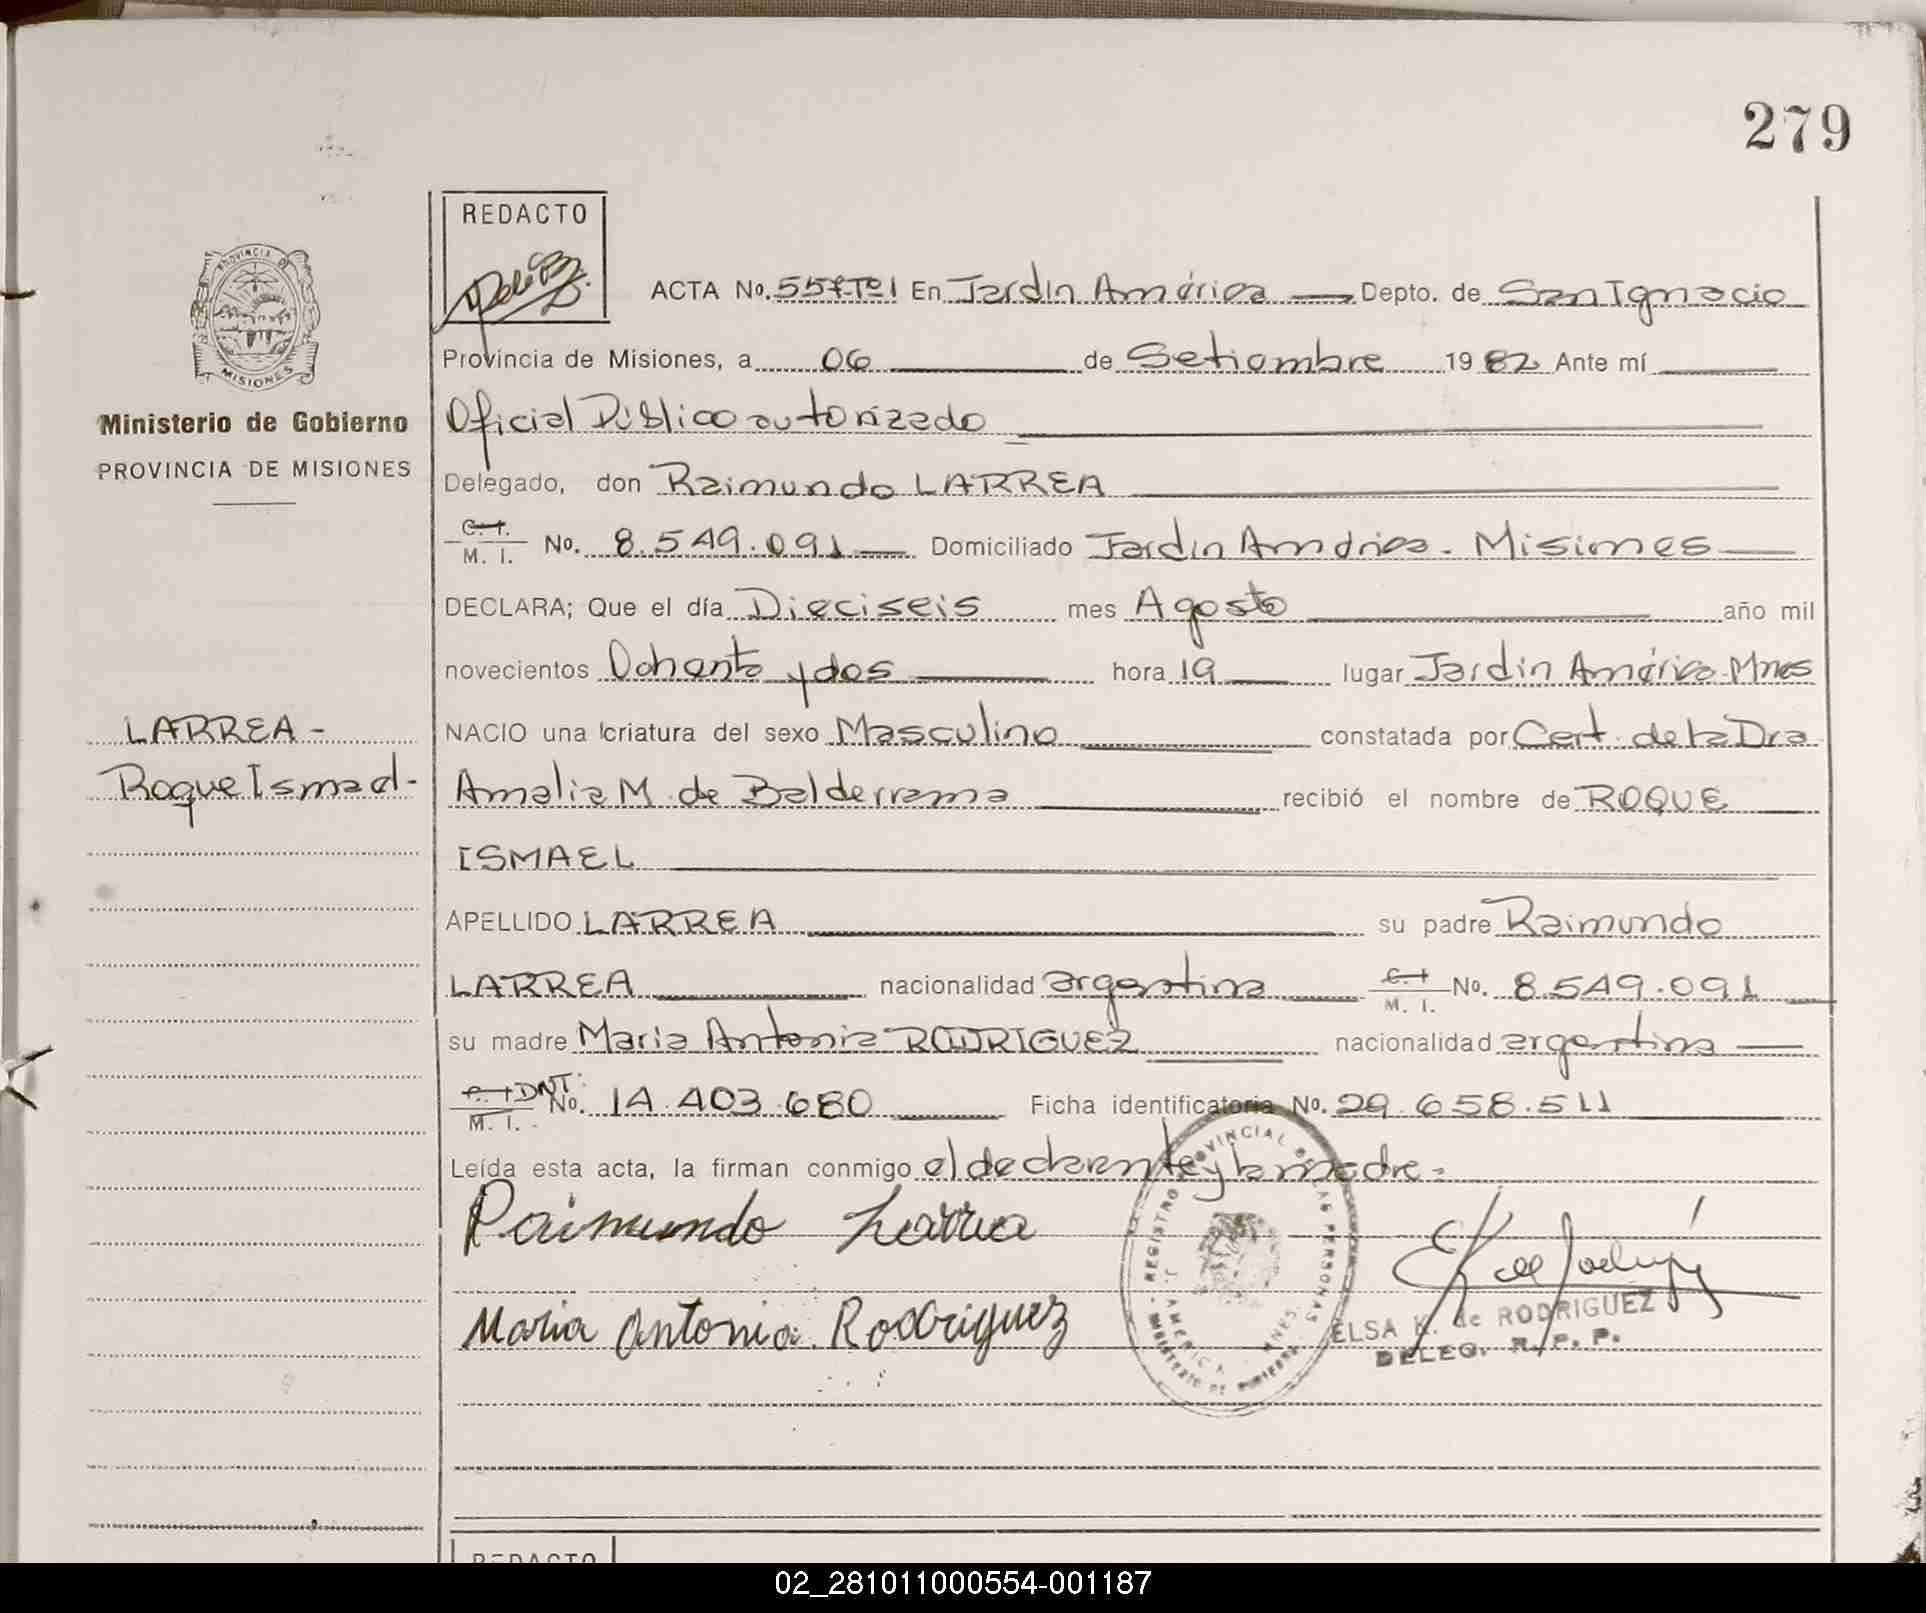 279
REDACTO
PROVINCIA DE
MISIONES
ACTA No. 557-Tº1 En Jardin América Depto. de San Ignacio
Provincia de Misiones, a 06 de Setiembre 1982 Ante mí
Ministerio de Gobierno
PROVINCIA DE MISIONES
Oficial Público autorizado
Delegado, don Raimundo LARREA
C. I.
M. I. No. 8.549.091 Domiciliado Jardin América. Misiones
DECLARA; Que el día Dieciseis mes Agosto año mil
novecientos Ochenta y dos hora 19 lugar Jardin América-Mnes
LARREA -
Roque Ismael-
NACIO una criatura del sexo Masculino constatada por Cert. de la Dra
Amalia M. de Balderrama recibió el nombre de ROQUE
ISMAEL
APELLIDO LARREA su padre Raimundo
LARREA nacionalidad argentina C. I
M. I. No. 8.549.091
su madre Maria Antonia RODRIGUEZ nacionalidad argentina
M. I. No. 14.403.680 Ficha identificatoria No. 29.658.511
Leída esta acta, la firman conmigo el declarante y la madre=
Raimundo Larrea
Maria Antonia Rodriguez
REGISTRO PROVINCIAL DE LAS PERSONAS
J. AMERICA - MNES.
MINISTERIO DE GOBIERNO
ELSA K. de RODRIGUEZ
DELEG. R. P. P.
REDACTO
02_281011000554-001187